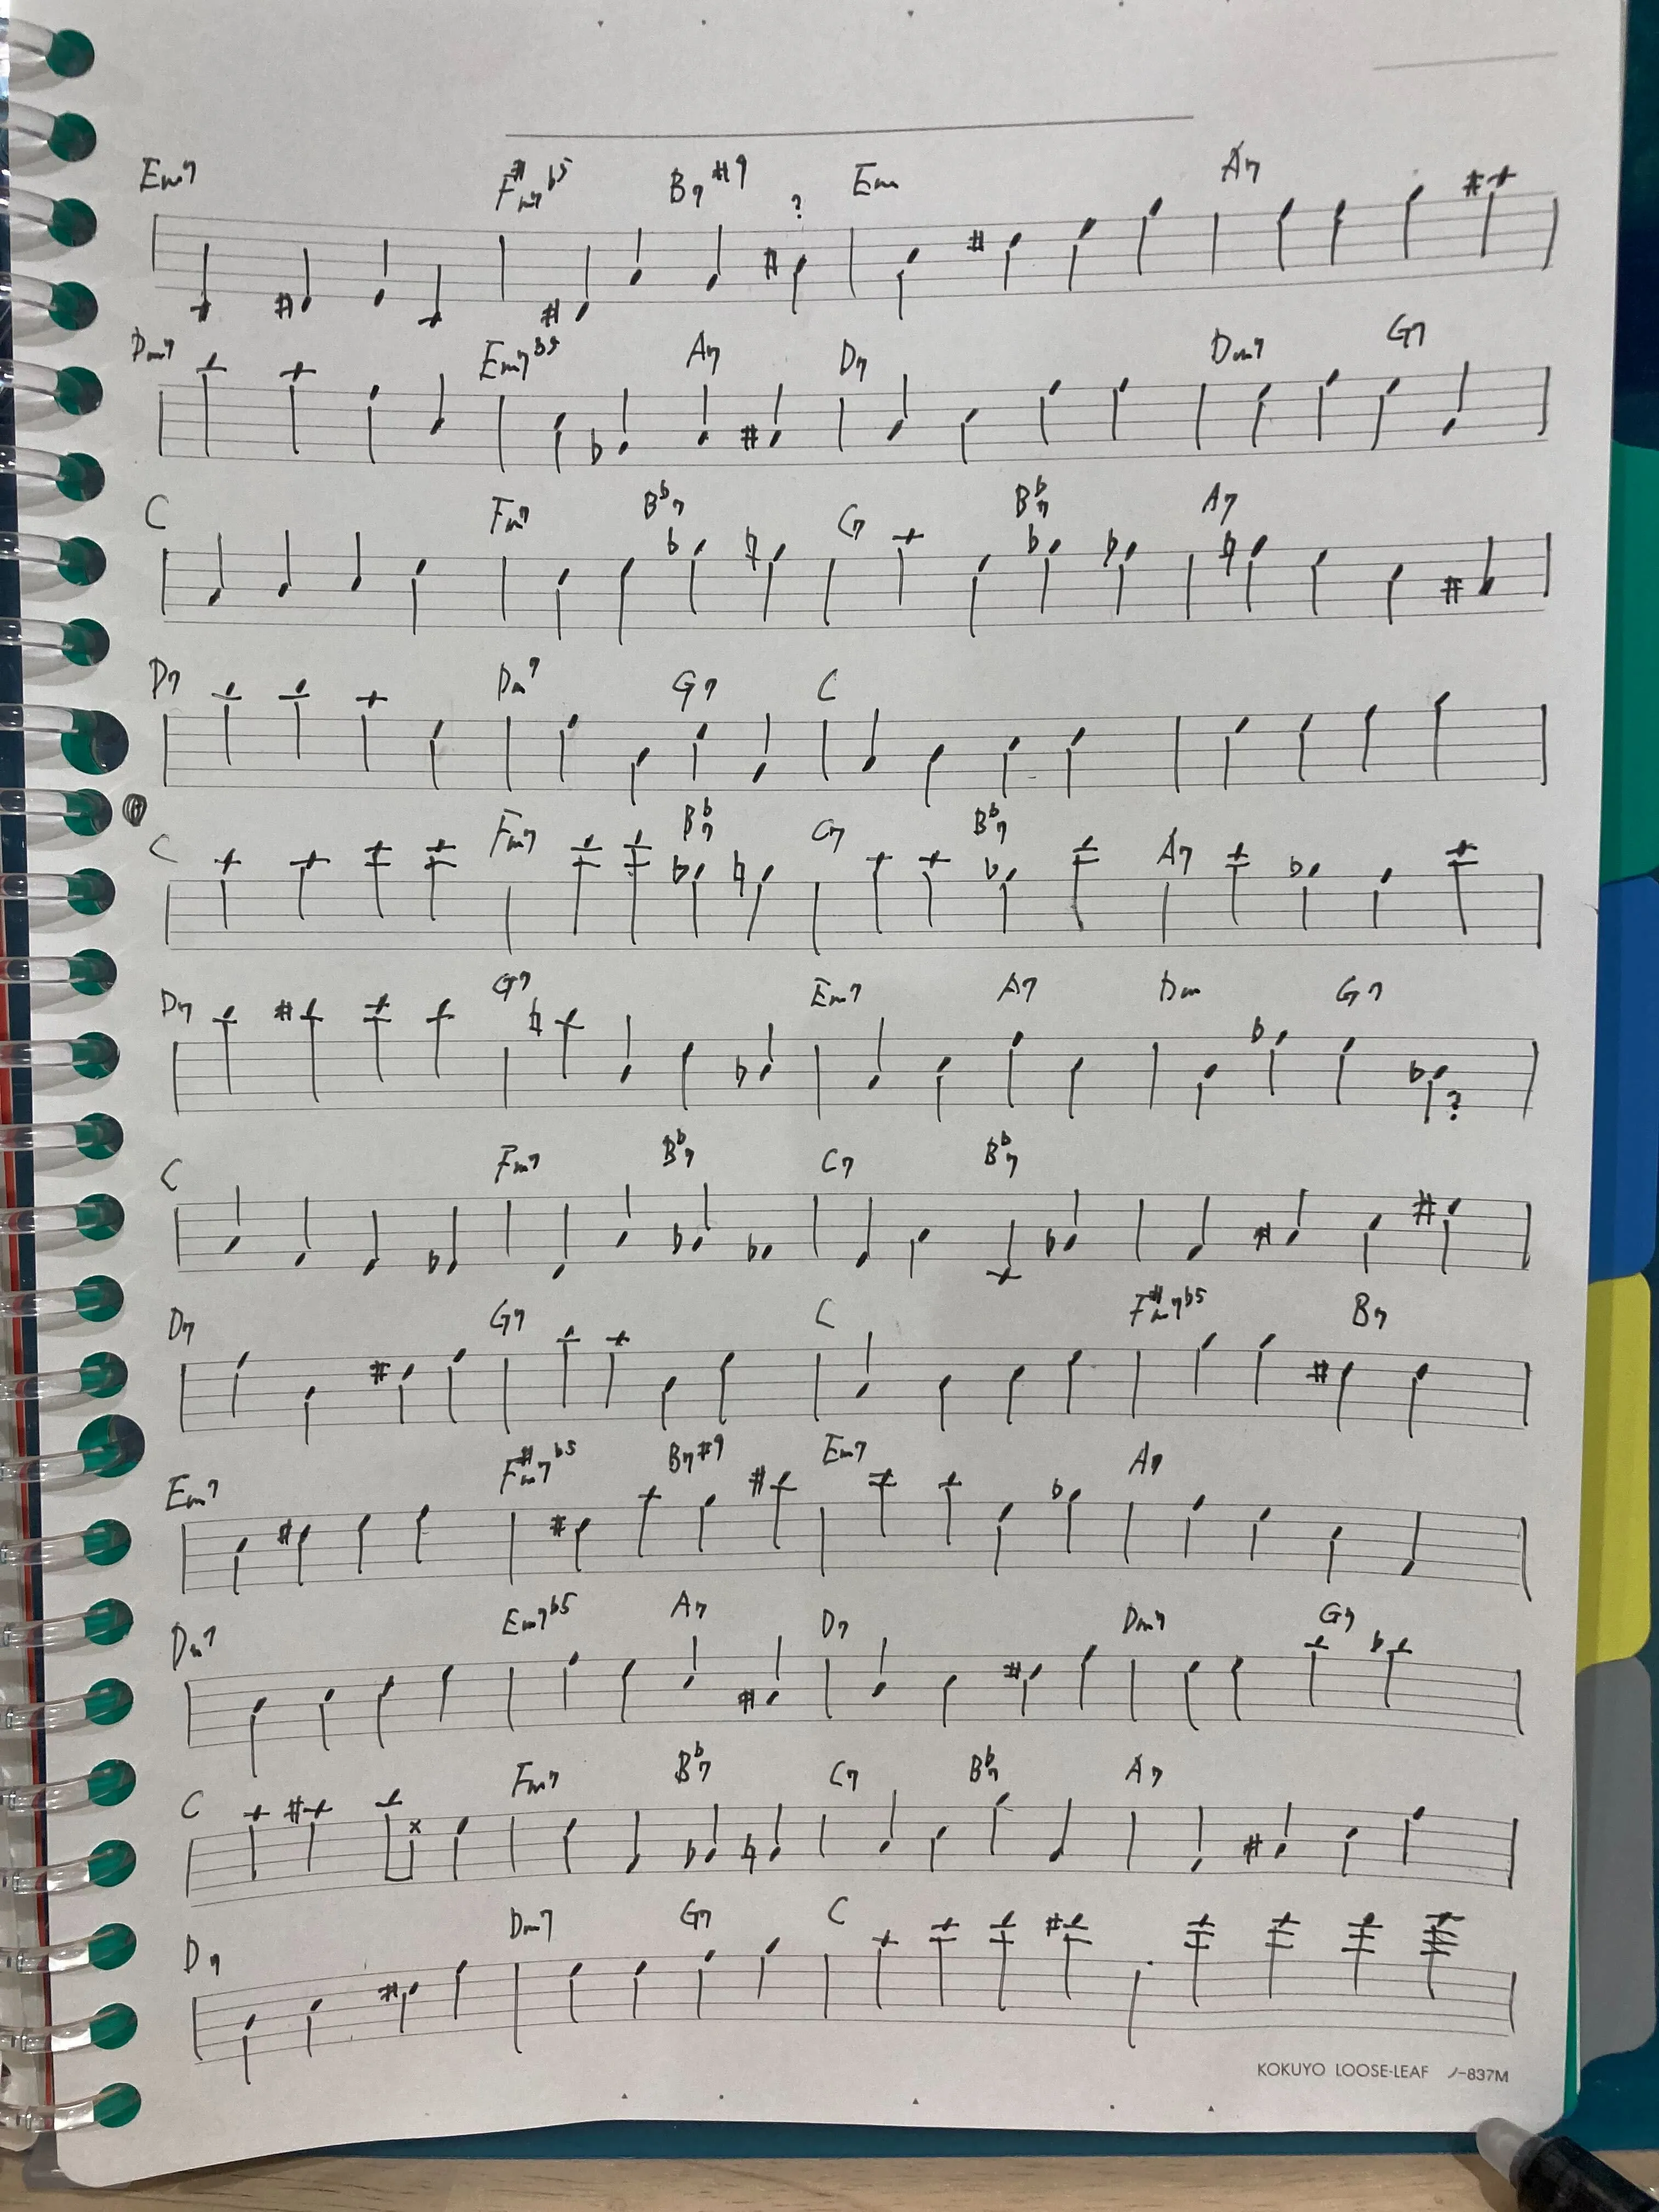 Em7 F#m7b5 B7#9 ? Em A7
Dm7 Em7b5 A7 D7 Dm7 G7
C Fm7 Bb7 C7 Bb7 A7
D7 Dm7 G7 C
C Fm7 Bb7 C7 Bb7 A7
D7 G7 Em7 A7 Dm G7 ?
C Fm7 Bb7 C7 Bb7
D7 G7 C F#m7b5 B7
Em7 F#m7b5 B7#9 Em7 A7
Dm7 Em7b5 A7 D7 Dm7 G7
C Fm7 Bb7 C7 Bb7 A7
D7 Dm7 G7 C
KOKUYO LOOSE-LEAF ノ-837M